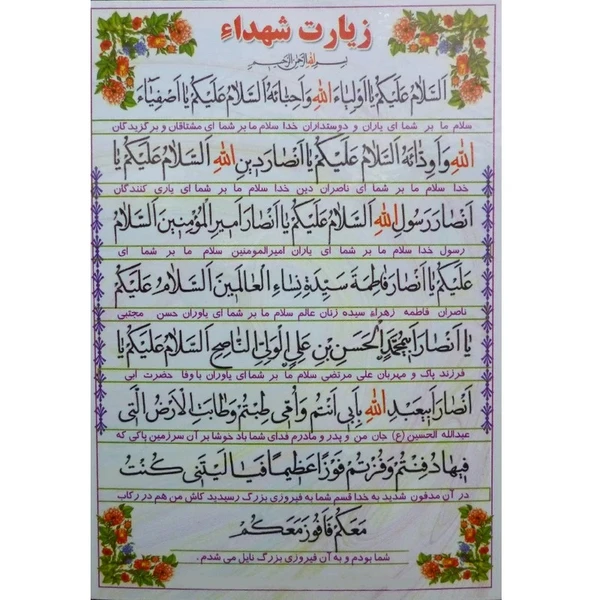 زیارت شهداء
بسم الله الرحمن الرحیم
اَلسَّلامُ عَلَیْکُمْ یا اَوْلِیاءَ اللهِ وَ اَحِبّائَهُ اَلسَّلامُ عَلَیْکُمْ یا اَصْفِیاءَ
سلام ما بر شما ای یاران و دوستداران خدا سلام ما بر شما ای مشتاقان و برگزیدگان
اللهِ وَ اَوِدّائَهُ اَلسَّلامُ عَلَیْکُمْ یا اَنْصارَ دینِ اللهِ اَلسَّلامُ عَلَیْکُمْ یا
خدا سلام ما بر شما ای ناصران دین خدا سلام ما بر شما ای یاری کنندگان
اَنْصارَ رَسُولِ اللهِ اَلسَّلامُ عَلَیْکُمْ یا اَنْصارَ اَمیرِ الْمُؤْمِنینَ اَلسَّلامُ
رسول خدا سلام ما بر شما ای یاران امیرالمومنین سلام ما بر شما ای
عَلَیْکُمْ یا اَنْصارَ فاطِمَةَ سَیِّدَةِ نِساءِ الْعالَمینَ اَلسَّلامُ عَلَیْکُمْ
ناصران فاطمه زهراء سیده زنان عالم سلام ما بر شما ای یاوران حسن مجتبی
یا اَنْصارَ اَبیمُحَمَّدٍ الْحَسَنِ بْنِ عَلِیٍ الْوَلِیِّ النّاصِحِ اَلسَّلامُ عَلَیْکُمْ یا
فرزند پاک و مهربان علی مرتضی سلام ما بر شما ای یاوران با وفا حضرت ابی
اَنْصارَ اَبیعَبْدِ اللهِ بِاَبی اَنْتُمْ وَ اُمّی طِبْتُمْ وَ طابَتِ الْاَرْضُ الَّتی
عبدالله الحسین (ع) جان من و پدر و مادرم فدای شما باد خوشا بر آن سرزمین پاکی که
فیها دُفِنْتُمْ وَ فُزْتُمْ فَوْزاً عَظیماً فَیا لَیْتَنی کُنْتُ
در آن مدفون شدید به خدا قسم شما به فیروزی بزرگ رسیدید کاش من هم در رکاب
مَعَکُمْ فَاَفُوزَ مَعَکُمْ
شما بودم و به آن فیروزی بزرگ نایل می شدم.